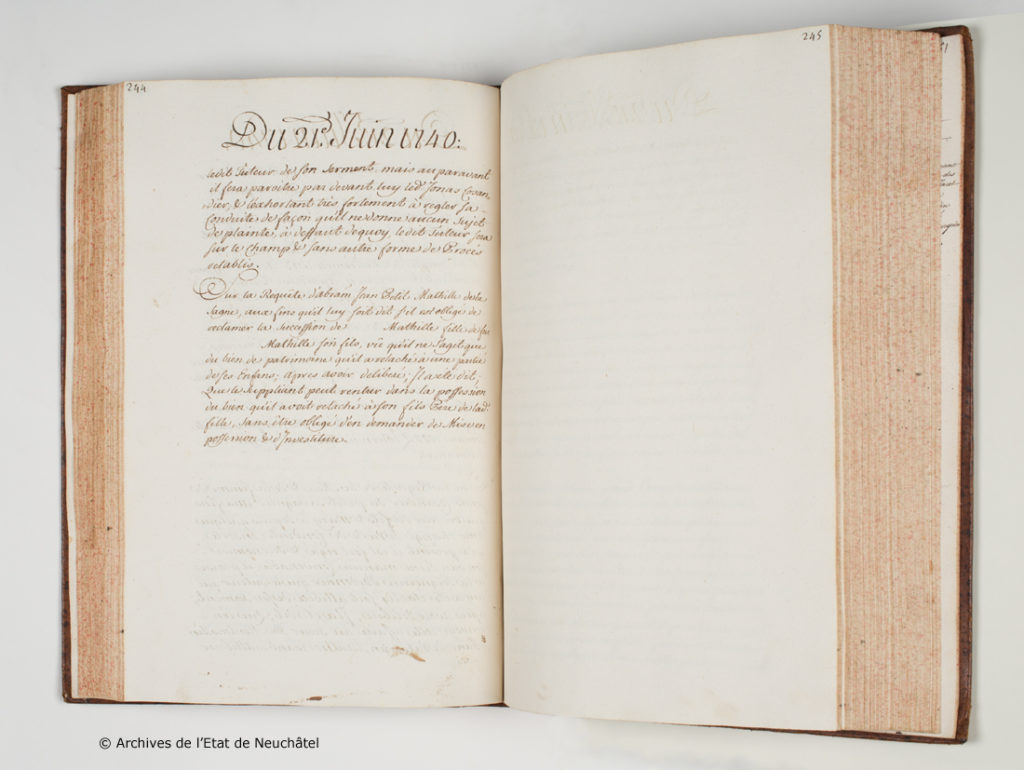 244
Du 21.e Juin 1740:
ledit Tuteur de son serment, mais auparavant
il fera paroitre par devant luy led. Jonas Cosan-
dier, & l'exhortant trés fortement à regler sa
Conduite de façon qu'il ne donne aucun Sujet
de plainte, à deffaut dequoy ledit Tuteur sera
sur le champ & sans autre forme de Procés
retablis.
Sur la Requête d'abram Jean Petit Mathille de la
Sagne, aux fins qu'il luy soit dit s'il est obligé de
reclamer la Succession de Mathille fille de feu
Mathille son fils, vû qu'il ne s'agit que
du bien de patrimoine qu'il a relaché à une partie
de ses Enfans; apres avoir deliberé; Il a eté dit;
Que le Suppliant peut rentrer dans la possession
du bien qu'il avoit relaché à son fils Pere de lad.
fille, sans être obligé d'en demander de Mise en
possession & d'Investiture.
245
© Archives de l'Etat de Neuchâtel